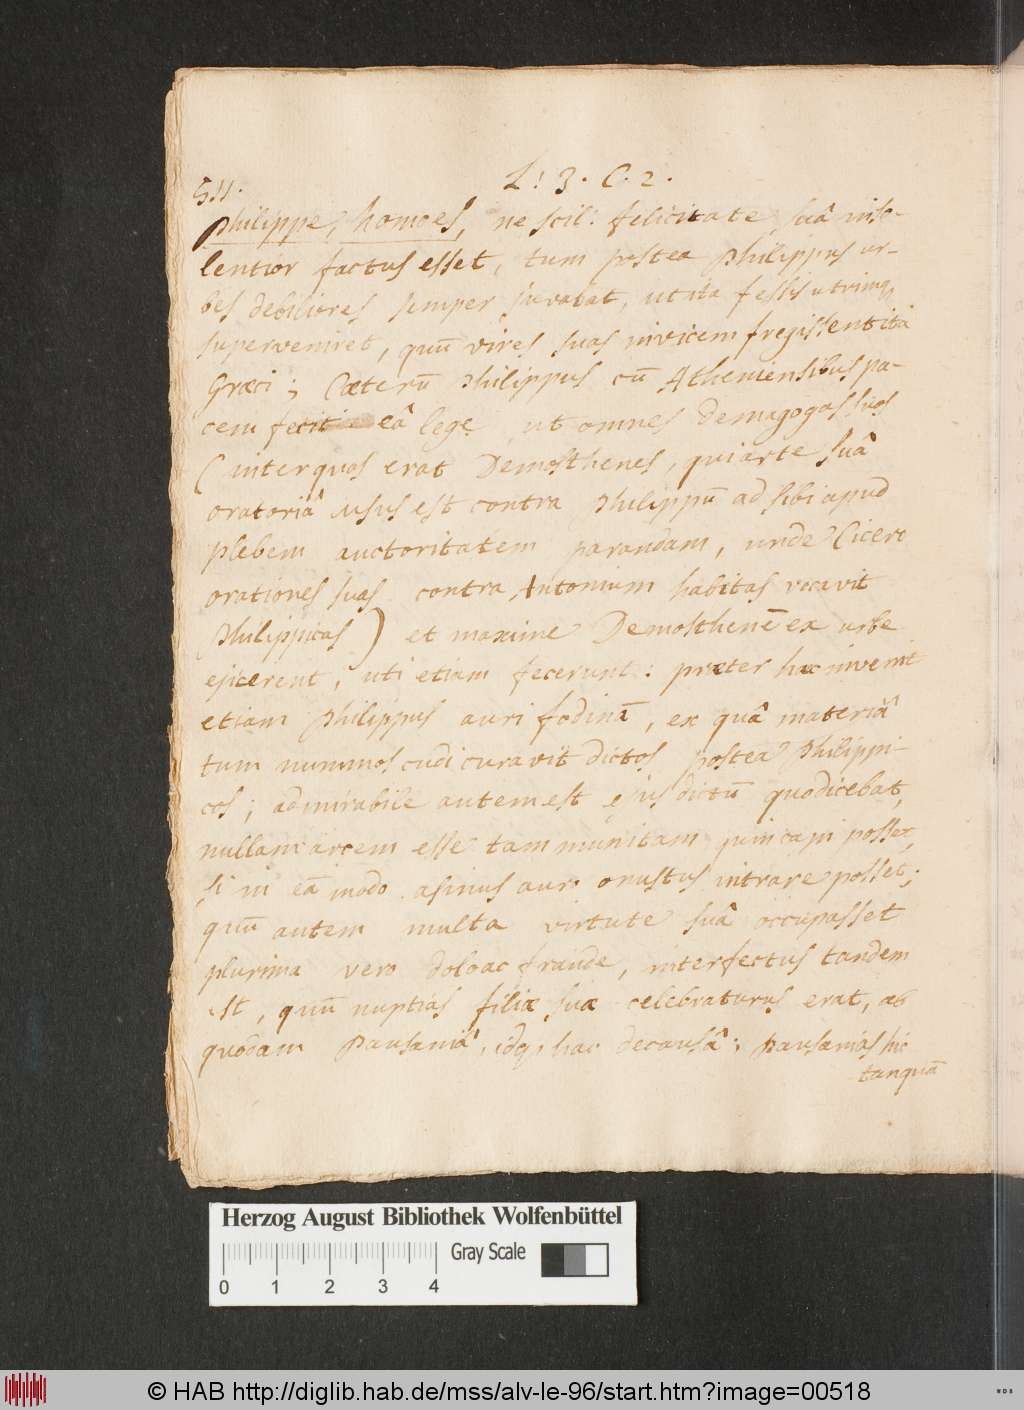 L: 3. C. 2.
511.
Philippe, homo es, ne scil: felicitate suâ inso-
lentior factus esset, tum postea Philippus ur-
bes debiliores semper juvabat, ut ita fessis utrimq
superveniret, quum̄ vires suas invicem fregissent ita
Græci; Cæterū Philippus cū Atheniensibus pa-
cem fecit eâ lege ut omnes demagogos suos
(inter quos erat Demosthenes, qui arte suâ
oratoriâ usus est contra Philippū ad sibi apud
plebem auctoritatem parandam, unde Cicero
orationes suas contra Antonium habitas vocavit
Philippicas) et maxime Demosthenē ex urbe
ejicerent, uti etiam fecerunt: præter hæc invenit
etiam Philippus auri fodinā, ex quâ materiâ
tum nummos cudi curavit dictos postea Philippi-
cos; admirabile autem est ejus dictū quo dicebat,
nullam arcem esse tam munitam quin capi posset,
si in eā modo asinus auro onustus intrare posset;
quum̄ autem multa virtute suâ occupasset
plurima vero dolo ac fraude, interfectus tandem
est, quum̄ nuptias filiæ suæ celebraturus erat, ab
quodam Pausaniâ, idq, hac de causâ; Pausanias hic
tanquā
Herzog August Bibliothek Wolfenbüttel
Gray Scale
0 1 2 3 4
© HAB http://diglib.hab.de/mss/alv-le-96/start.htm?image=00518